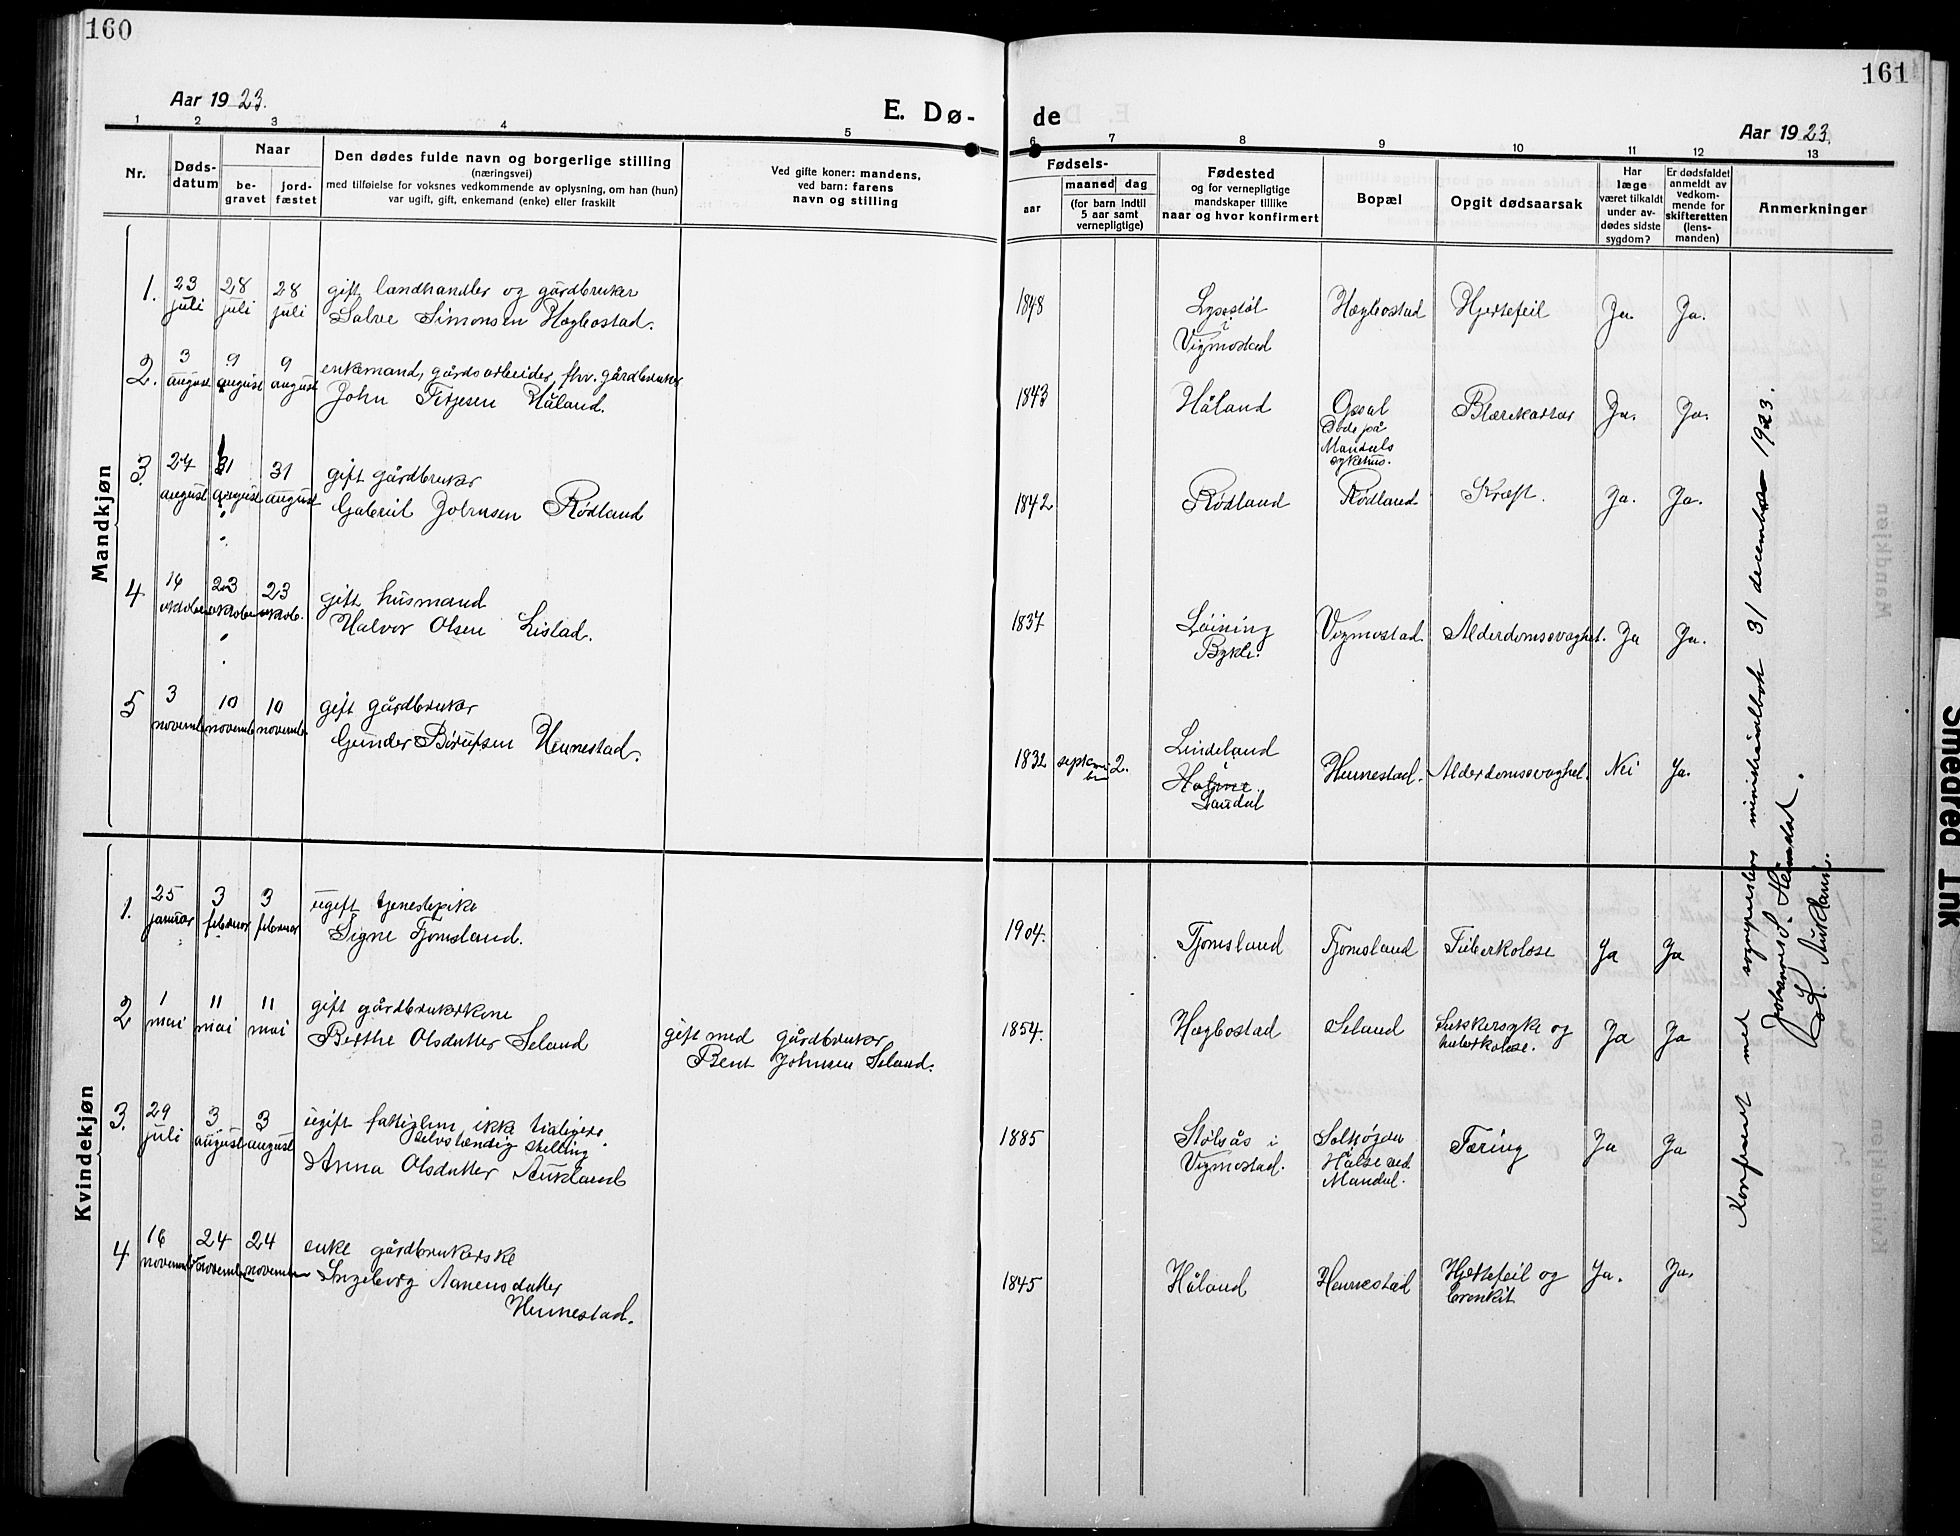 160
Aar 1923.
E. Dø-
1 2 3 4 5
Nr.
Døds-
datum
Naar
be-
gravet
jord-
fæstet
Den dødes fulde navn og borgerlige stilling
(næringsvei)
med tilføielse for voksnes vedkommende av oplysning, om han (hun)
var ugift, gift, enkemand (enke) eller fraskilt
Ved gifte koner: mandens,
ved barn: farens
navn og stilling
Mandkjøn
1. 23 juli 28 juli 28 juli gift landhandler og gårdbruker
Salve Simonsen Hægbostad.
2. 3 august 9 august 9 august enkemand, gårdsarbeider, fhv. gårdbruker
John Terjesen Håland.
3. 24 august 31 august 31 august gift gårdbruker
Gabriel Johnsen Rødland
4 16 oktober 23 oktober 23 oktob. gift husmand
Halvor Olsen Listad.
5 3 novemb 10 novemb 10 novemb. gift gårdbruker
Gunder Børufsen Hennestad.
Kvindekjøn
1. 25 januar 3 februar 3 februar ugift tjenestepike
Signe Tjomsland.
2 1 mai 11 mai 11 mai gift gårdbrukerkone
Berthe Olsdatter Seland
gift med gårdbruker
Bent Johnsen Seland.
3. 29 juli 3 august 3 august ugift fattiglem, ikke tidligere
selvstændig stilling
Anna Olsdatter Aukland
4 16 novemb 24 november 24 november enke gårdbrukerske
Ingeborg Aanensdatter
Hennestad.
161
de
Aar 1923.
6 7 8 9 10 11 12 13
Fødsels-
aar
maaned dag
(for barn indtil
5 aar samt
vernepligtige)
Fødested
og for vernepligtige
mandskaper tillike
naar og hvor konfirmert
Bopæl
Opgit dødsaarsak
Har
læge
været tilkaldt
under av-
dødes sidste
sygdom?
Er dødsfaldet
anmeldt av
vedkom-
mende for
skifteretten
(lens-
manden)
Anmerkninger
1848 Lysestøl
i
Vigmostad
Hægbostad Hjertefeil Ja. Ja.
1843 Håland
Opsal
Døde på
Mandals
sykehus.
Blærekatar Ja. Ja.
1842 Rødland Rødland Kræft. Ja. Ja.
1837 Løining
Bykle.
Vigmostad. Alderdomssvaghet. Ja Ja.
1832 september 2. Lindeland
i
Holme
Laudal
Hennestad. Alderdomssvaghet. Nei Ja.
1904. Tjomsland Tjomsland Tuberkolose Ja Ja
1854. Hægbostad Seland Sukkersyke og
tuberkolose. Ja Ja
1885 Stølsås i
Vigmostad.
Solhøgda
Halse ved
Mandal.
Tæring Ja Ja
1845 Håland Hennestad Hjertefeil og
bronkit Ja. Ja.
Konferert med sogneprestens ministerialbok 31 december 1923.
Smeared Ink